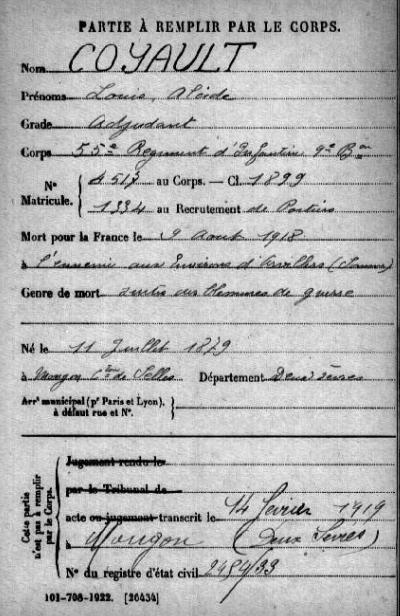 PARTIE À REMPLIR PAR LE CORPS.
Nom COYAULT
Prénoms Louis, Alcide
Grade Adjudant
Corps 55e Régiment d'Infanterie 9e Bon
Nº Matricule. { 4517 au Corps. — Cl. 1899
1334 au Recrutement de Poitiers
Mort pour la France le 9 Août 1918
à l'ennemi aux Environs d'Arvillers (Somme)
Genre de mort suites des blessures de guerre
Né le 11 Juillet 1879
à Mougon Con de Celles Département Deux Sèvres
Arrt municipal (pr Paris et Lyon), à défaut rue et Nº. }
Cette partie n'est pas à remplir par le Corps.
Jugement rendu le
par le Tribunal de
acte ou jugement transcrit le 14 février 1919
à Mougon (Deux Sèvres)
Nº du registre d'état civil 2484/33
101-708-1922. [26434]